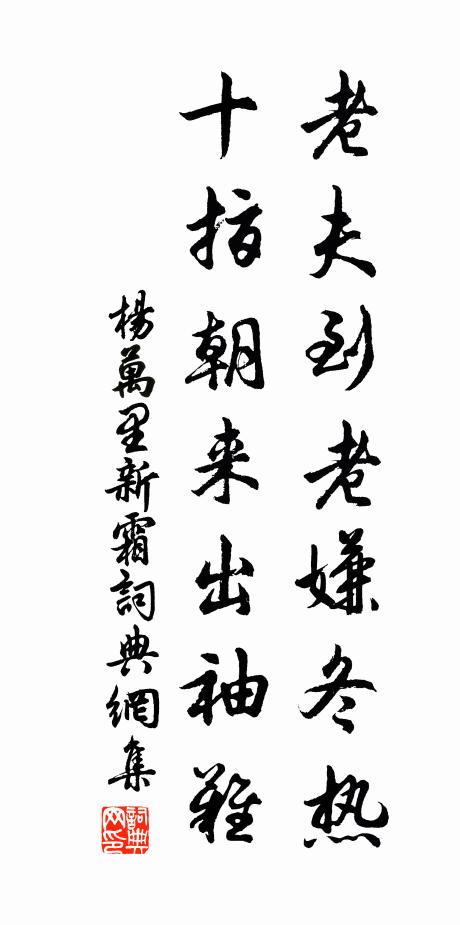 老夫到老嫌冬热
十指朝来出袖难
楊萬里新霜詞典網集
詞典网印